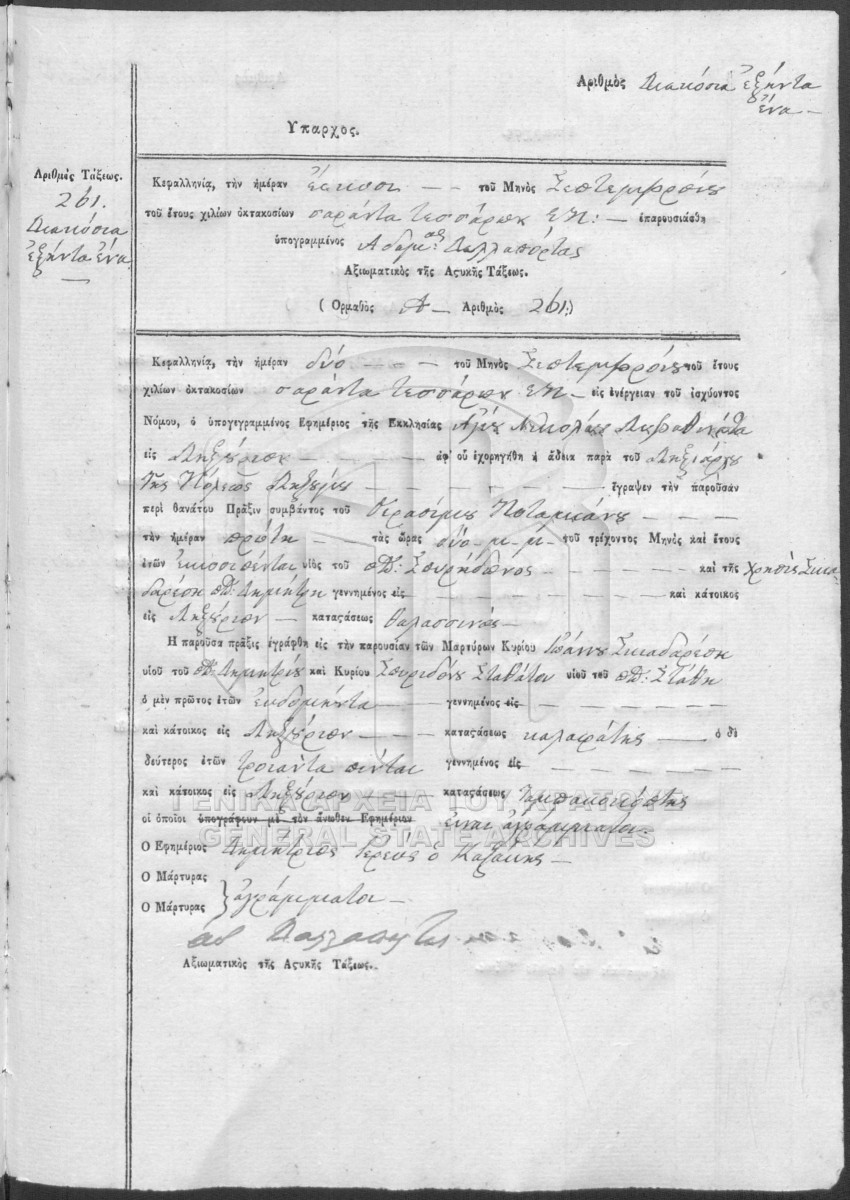 Αριθμὸς Διακόσια ἑξήντα
ἕνα –
Υπαρχος.
Αριθμὸς Τάξεως.
261.
Διακόσια
ἑξήντα ἕνα
Κεφαλληνίᾳ, τὴν ἡμέραν εἴκοσι – – τοῦ Μηνὸς Σεπτεμβρίου
τοῦ ἔτους χιλίων ὀκτακοσίων σαράντα τεσσάρων Ε.Π: – ἐπαρουσιάσθη
ὑπογραμμένος Αδαμ: Δαλλαπόρτας
Αξιωματικὸς τῆς Αςυκῆς Τάξεως.
( Ορμαθὸς A – Αριθμὸς 261.)
Κεφαλληνίᾳ, τὴν ἡμέραν δύο – – – τοῦ Μηνὸς Σεπτεμβρίου τοῦ ἔτους
χιλίων ὀκτακοσίων σαράντα τεσσάρων Ε.Π – εἰς ἐνέργειαν τοῦ ἰσχύοντος
Νόμου, ὁ ὑπογεγραμμένος Εφημέριος τῆς Εκκλησίας Αγίου Νικολάου
εἰς Ληξούριον – – – – ἀφ' οὗ ἐχορηγήθη ἡ ἄδεια παρὰ τοῦ Ληξιάρχου
τῆς Πόλεως Ληξουρίου – – – – – – ἔγραψεν τὴν παροῦσαν
περὶ θανάτου Πρᾶξιν συμβάντος τοῦ Γερασίμου Ποταμιάνου – – –
τὴν ἡμέραν πρώτη – τὰς ὥρας δύο μ. μ. τοῦ τρέχοντος Μηνὸς καὶ ἔτους
ἐτῶν εἰκοσιπέντε υἱὸς τοῦ ποτ: Σπυρήδωνος – – – – – καὶ τῆς
ποτ: Δημήτρη γεννημένος εἰς – – – – – – καὶ κάτοικος
εἰς Ληξούριον – καταςάσεως θαλασσινός –
Η παροῦσα πρᾶξις ἐγράφθη εἰς τὴν παρουσίαν τῶν Μαρτύρων Κυρίου Ἰωάννου
υἱοῦ τοῦ ποτ: Δημητρίου καὶ Κυρίου Σπυρίδου Σταθάτου υἱοῦ τοῦ ποτ: Στάθη
ὁ μὲν πρῶτος ἐτῶν ἑυδομήντα – – γεννημένος εἰς – – – – –
καὶ κάτοικος εἰς Ληξούριον – – – καταςάσεως καλαφάτης – ὁ δὲ
δεύτερος ἐτῶν τριάντα πέντε γεννημένος εἰς – – – – –
καὶ κάτοικος εἰς Ληξούριον – – – καταςάσεως
οἱ ὁποῖοι ὑπογράφουν μὲ τὸν ἄνωθεν Εφημέριον εἶναι ἀγράμματοι –
Ο Εφημέριος Δημήτριος Ἱερεὺς ὁ Καζάκης –
Ο Μάρτυρας
Ο Μάρτυρας } ἀγράμματοι –
Αδ Δαλλαπόρτας
Αξιωματικὸς τῆς Αςυκῆς Τάξεως.
ΓΕΝΙΚΑ ΑΡΧΕΙΑ ΤΟΥ ΚΡΑΤΟΥΣ
GENERAL STATE ARCHIVES